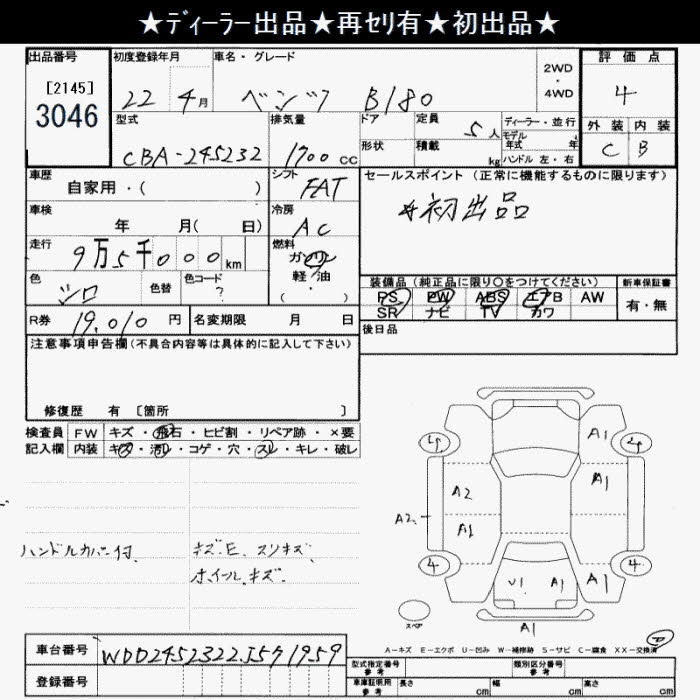 ★ﾃﾞｨｰﾗｰ出品★再ｾﾘ有★初出品★
出品番号 初度登録年月 車名・グレード 評価点
[2145]
3046
22 4月 ベンツ B180 2WD・4WD 4
型式 排気量 ドア 定員 5人 ディーラー・並行 外装 内装
CBA-245232 1700cc 形状 積載 kg モデル年式 年 ハンドル 左・右 C B
車歴 シフト セールスポイント(正常に機能するものに限ります)
自家用・( ) FAT ☆初出品
車検 冷房
年 月( 日) AC
走行 燃料
9万5千000km ガソリン
軽・油
色 色替 色コード 装備品(純品に限り○をつけてください) 新車保証書
シロ ? ( ・ ) PS PW ABS エアB AW 有・無
SR ナビ TV カワ
R券 19.010円 名変期限 月 日 後日品
注意事項申告欄(不具合内容等は具体的に記入して下さい)
修復歴 有 [箇所 ]
検査員 FW キズ・飛石・ヒビ割・リペア跡・×要
記入欄 内装 キズ・汚レ・コゲ・穴・スレ・キレ・破レ
A1
A1
A2
A2
A1
4 4
A1
U1 A1
ハンドルカバー付 キズ.E.スリキズ
ホイールキズ
スペア
A1
A－キズ E－エクボ U－凹み W－補修跡 S－サビ C－腐食 XX－交換済
車台番号 WDD2452322J571959
登録番号
型式指定番号 参考 類別区分番号 参考
車庫証明用 参考 長さ cm 幅 cm 高さ cm